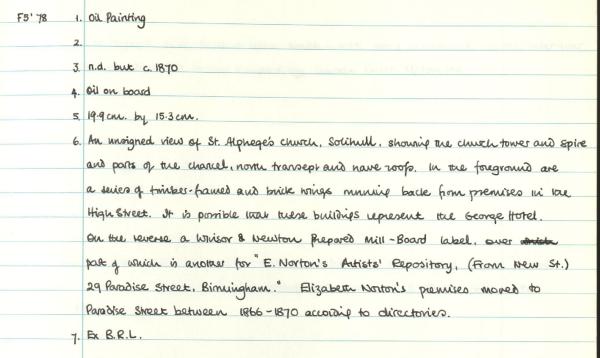 F5'78 1. Oil Painting
2.
3. n.d. but c.1870
4. Oil on board
5. 19.9cm. by 15.3cm.
6. An unsigned view of St. Alphege's church, Solihull, showing the church tower and spire
and parts of the chancel, north transept and nave roofs. In the foreground are
a series of timber-framed and brick wings running back from premises in the
High Street. It is possible that these buildings represent the George Hotel.
On the reverse a Winsor & Newton Prepared Mill-Board label, over
part of which is another for "E. Norton's Artists' Repository, (From New St.)
29 Paradise Street, Birmingham." Elizabeth Norton's premises moved to
Paradise Street between 1866-1870 according to directories.
7. Ex B.R.L.